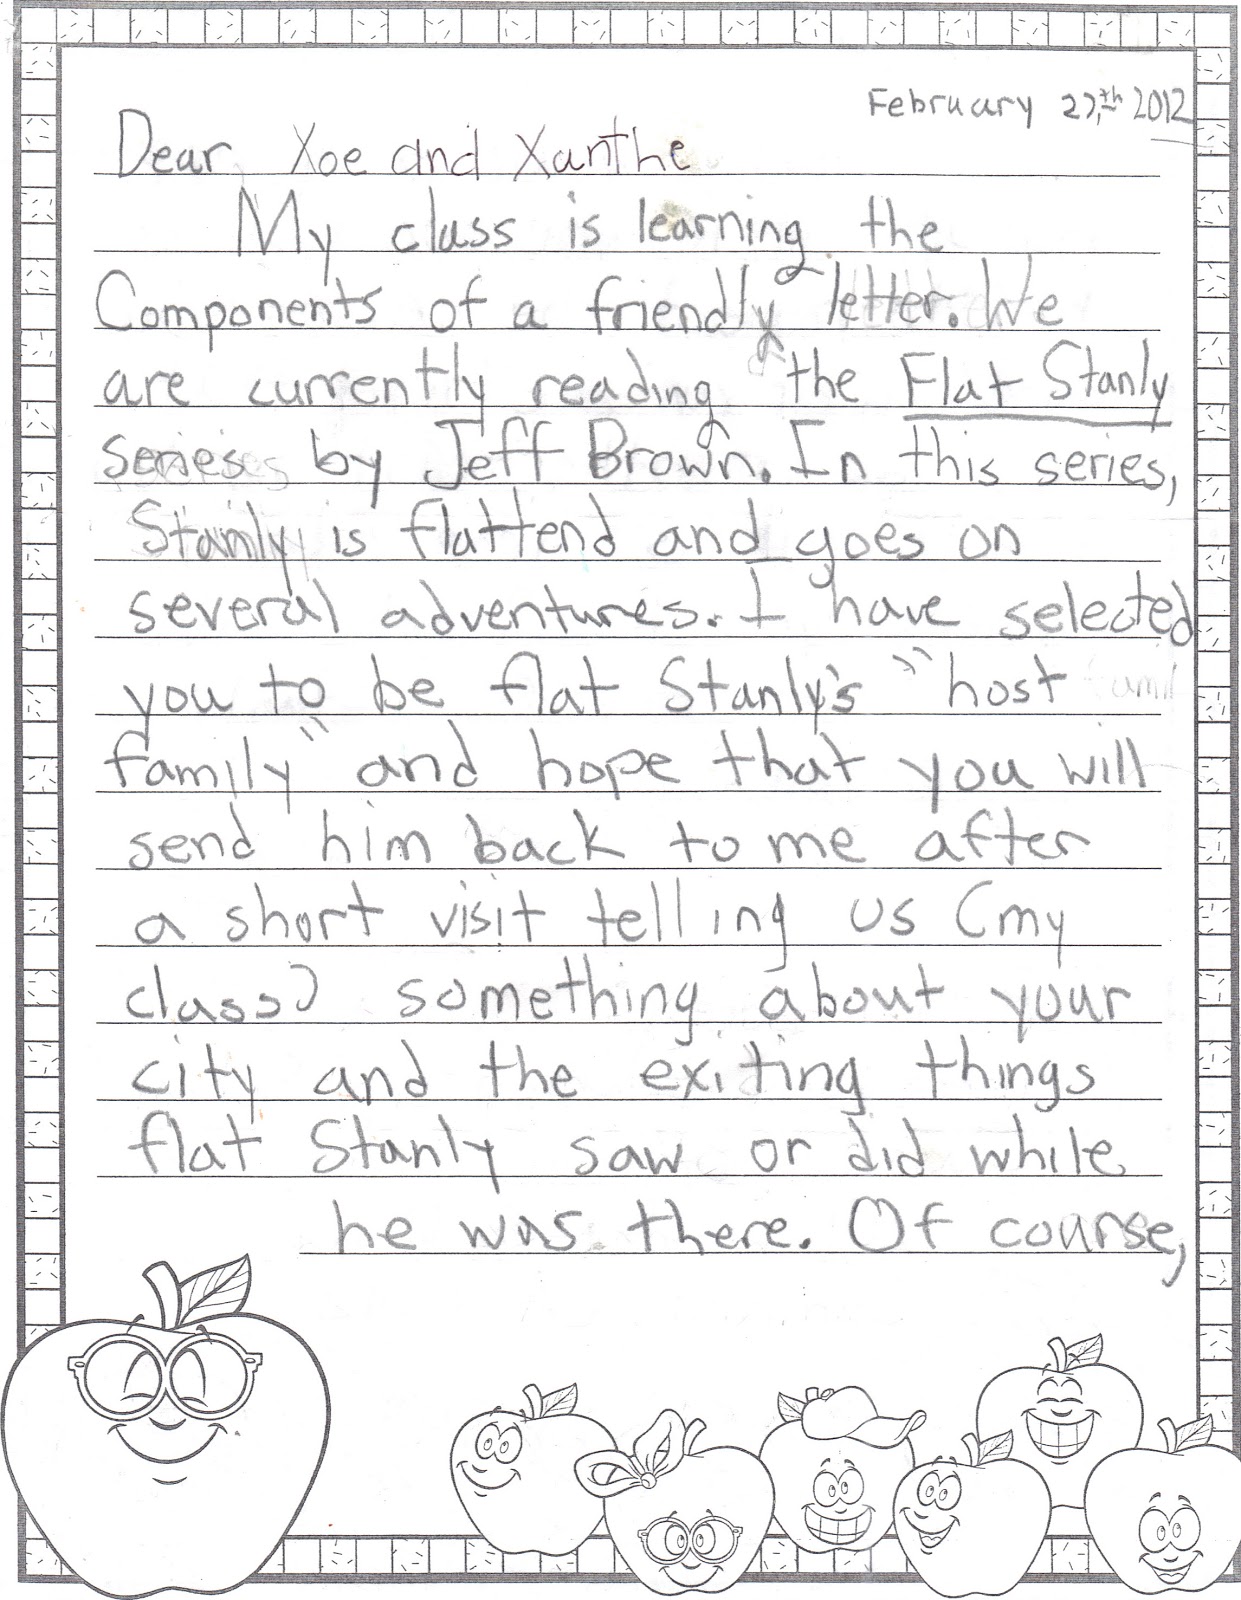 February 27,th 2012
Dear Xoe and Xanthe
My class is learning the
Components of a friendly letter. We
are currently reading the Flat Stanly
series by Jeff Brown. In this series,
Stanly is flattend and goes on
several adventures. I have selected
you to be flat Stanly's "host
family" and hope that you will
send him back to me after
a short visit telling us (my
class) something about your
city and the exiting things
flat Stanly saw or did while
he was there. Of course,